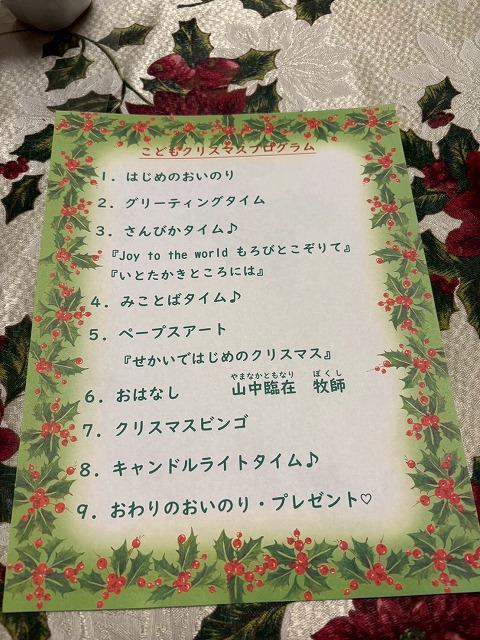 こどもクリスマスプログラム
1. はじめのおいのり
2. グリーティングタイム
3. さんびかタイム♪
『Joy to the world もろびとこぞりて』
『いとたかきところには』
4. みことばタイム♪
5. ペープスアート
『せかいではじめのクリスマス』
やまなかともなり ぼくし
6. おはなし 山中臨在 牧師
7. クリスマスビンゴ
8. キャンドルライトタイム♪
9. おわりのおいのり・プレゼント♡